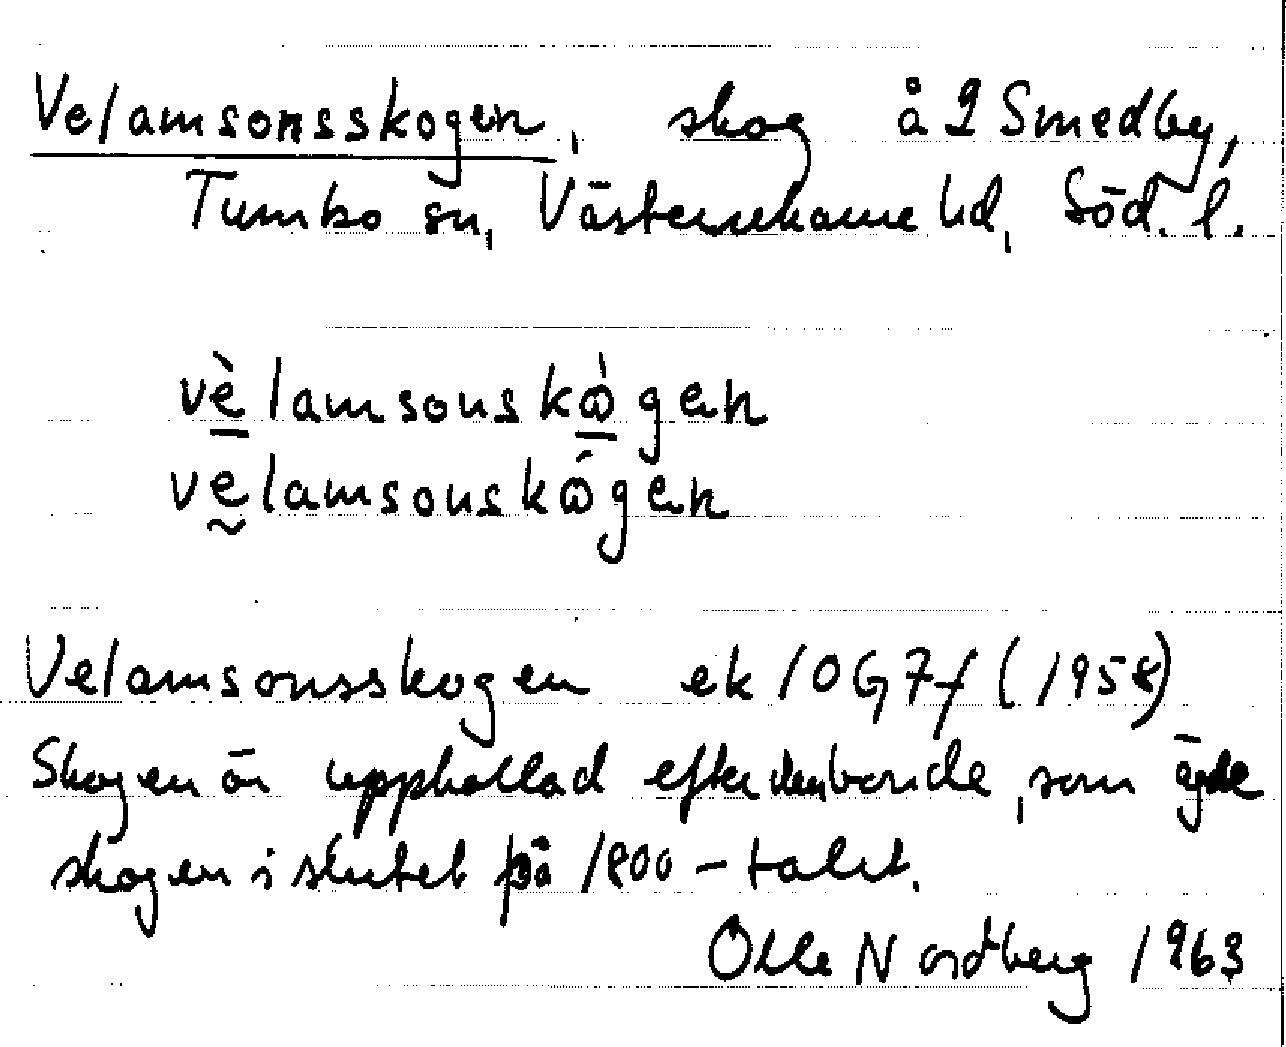 Velamsonsskogen, skog å 2 Smedby,
Tumbo sn, Västerrekarne hd, Söd. l.
vèlamsonskὼgen
vela̰msonskώgen
Velamsonsskogen ek 10G7f (1958)
Skogen är uppkallad efter den bonde, som ägde
skogen i slutet på 1800-talet.
Olle Nordberg 1963